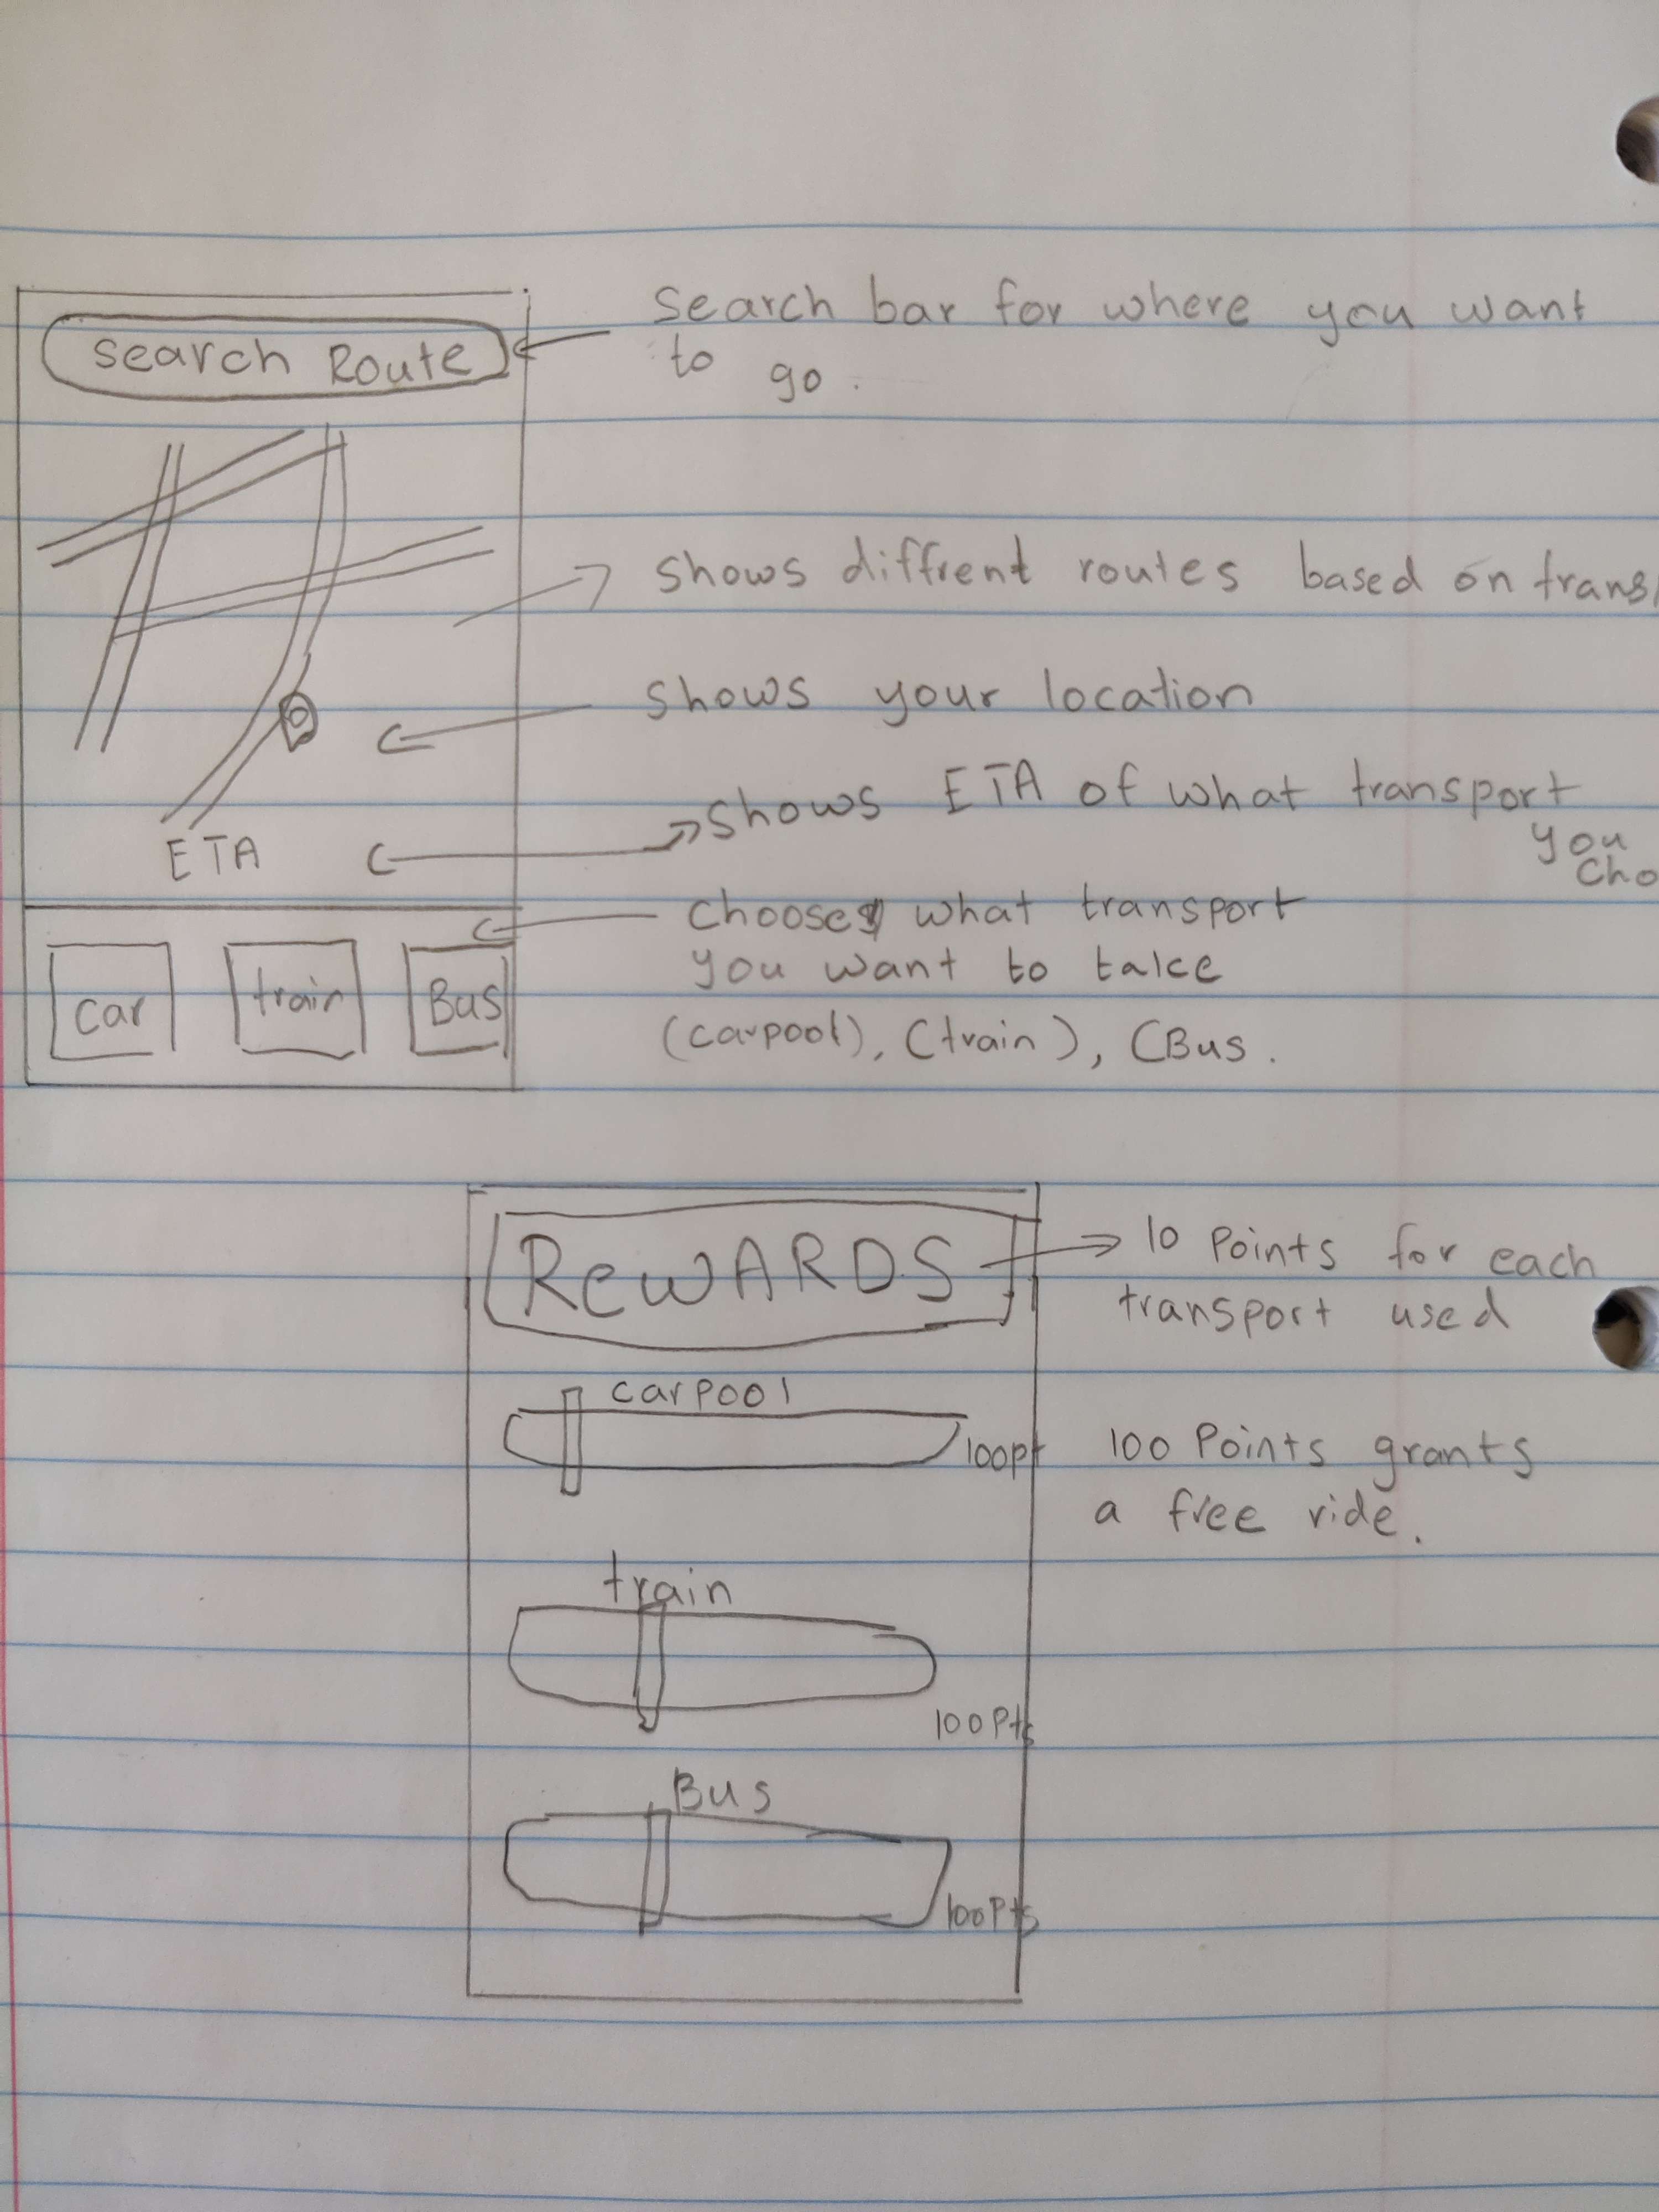 Search Route
Search bar for where you want
to go.
Shows diffrent routes based on trans
Shows your location
Shows ETA of what transport
you
Cho
ETA
Choose what transport
you want to take
(carpool), (train), (Bus.
car
train
Bus
ReWARDS
10 Points for each
transport used
carpool
100pt
100 Points grants
a free ride.
train
100Pts
Bus
100Pts